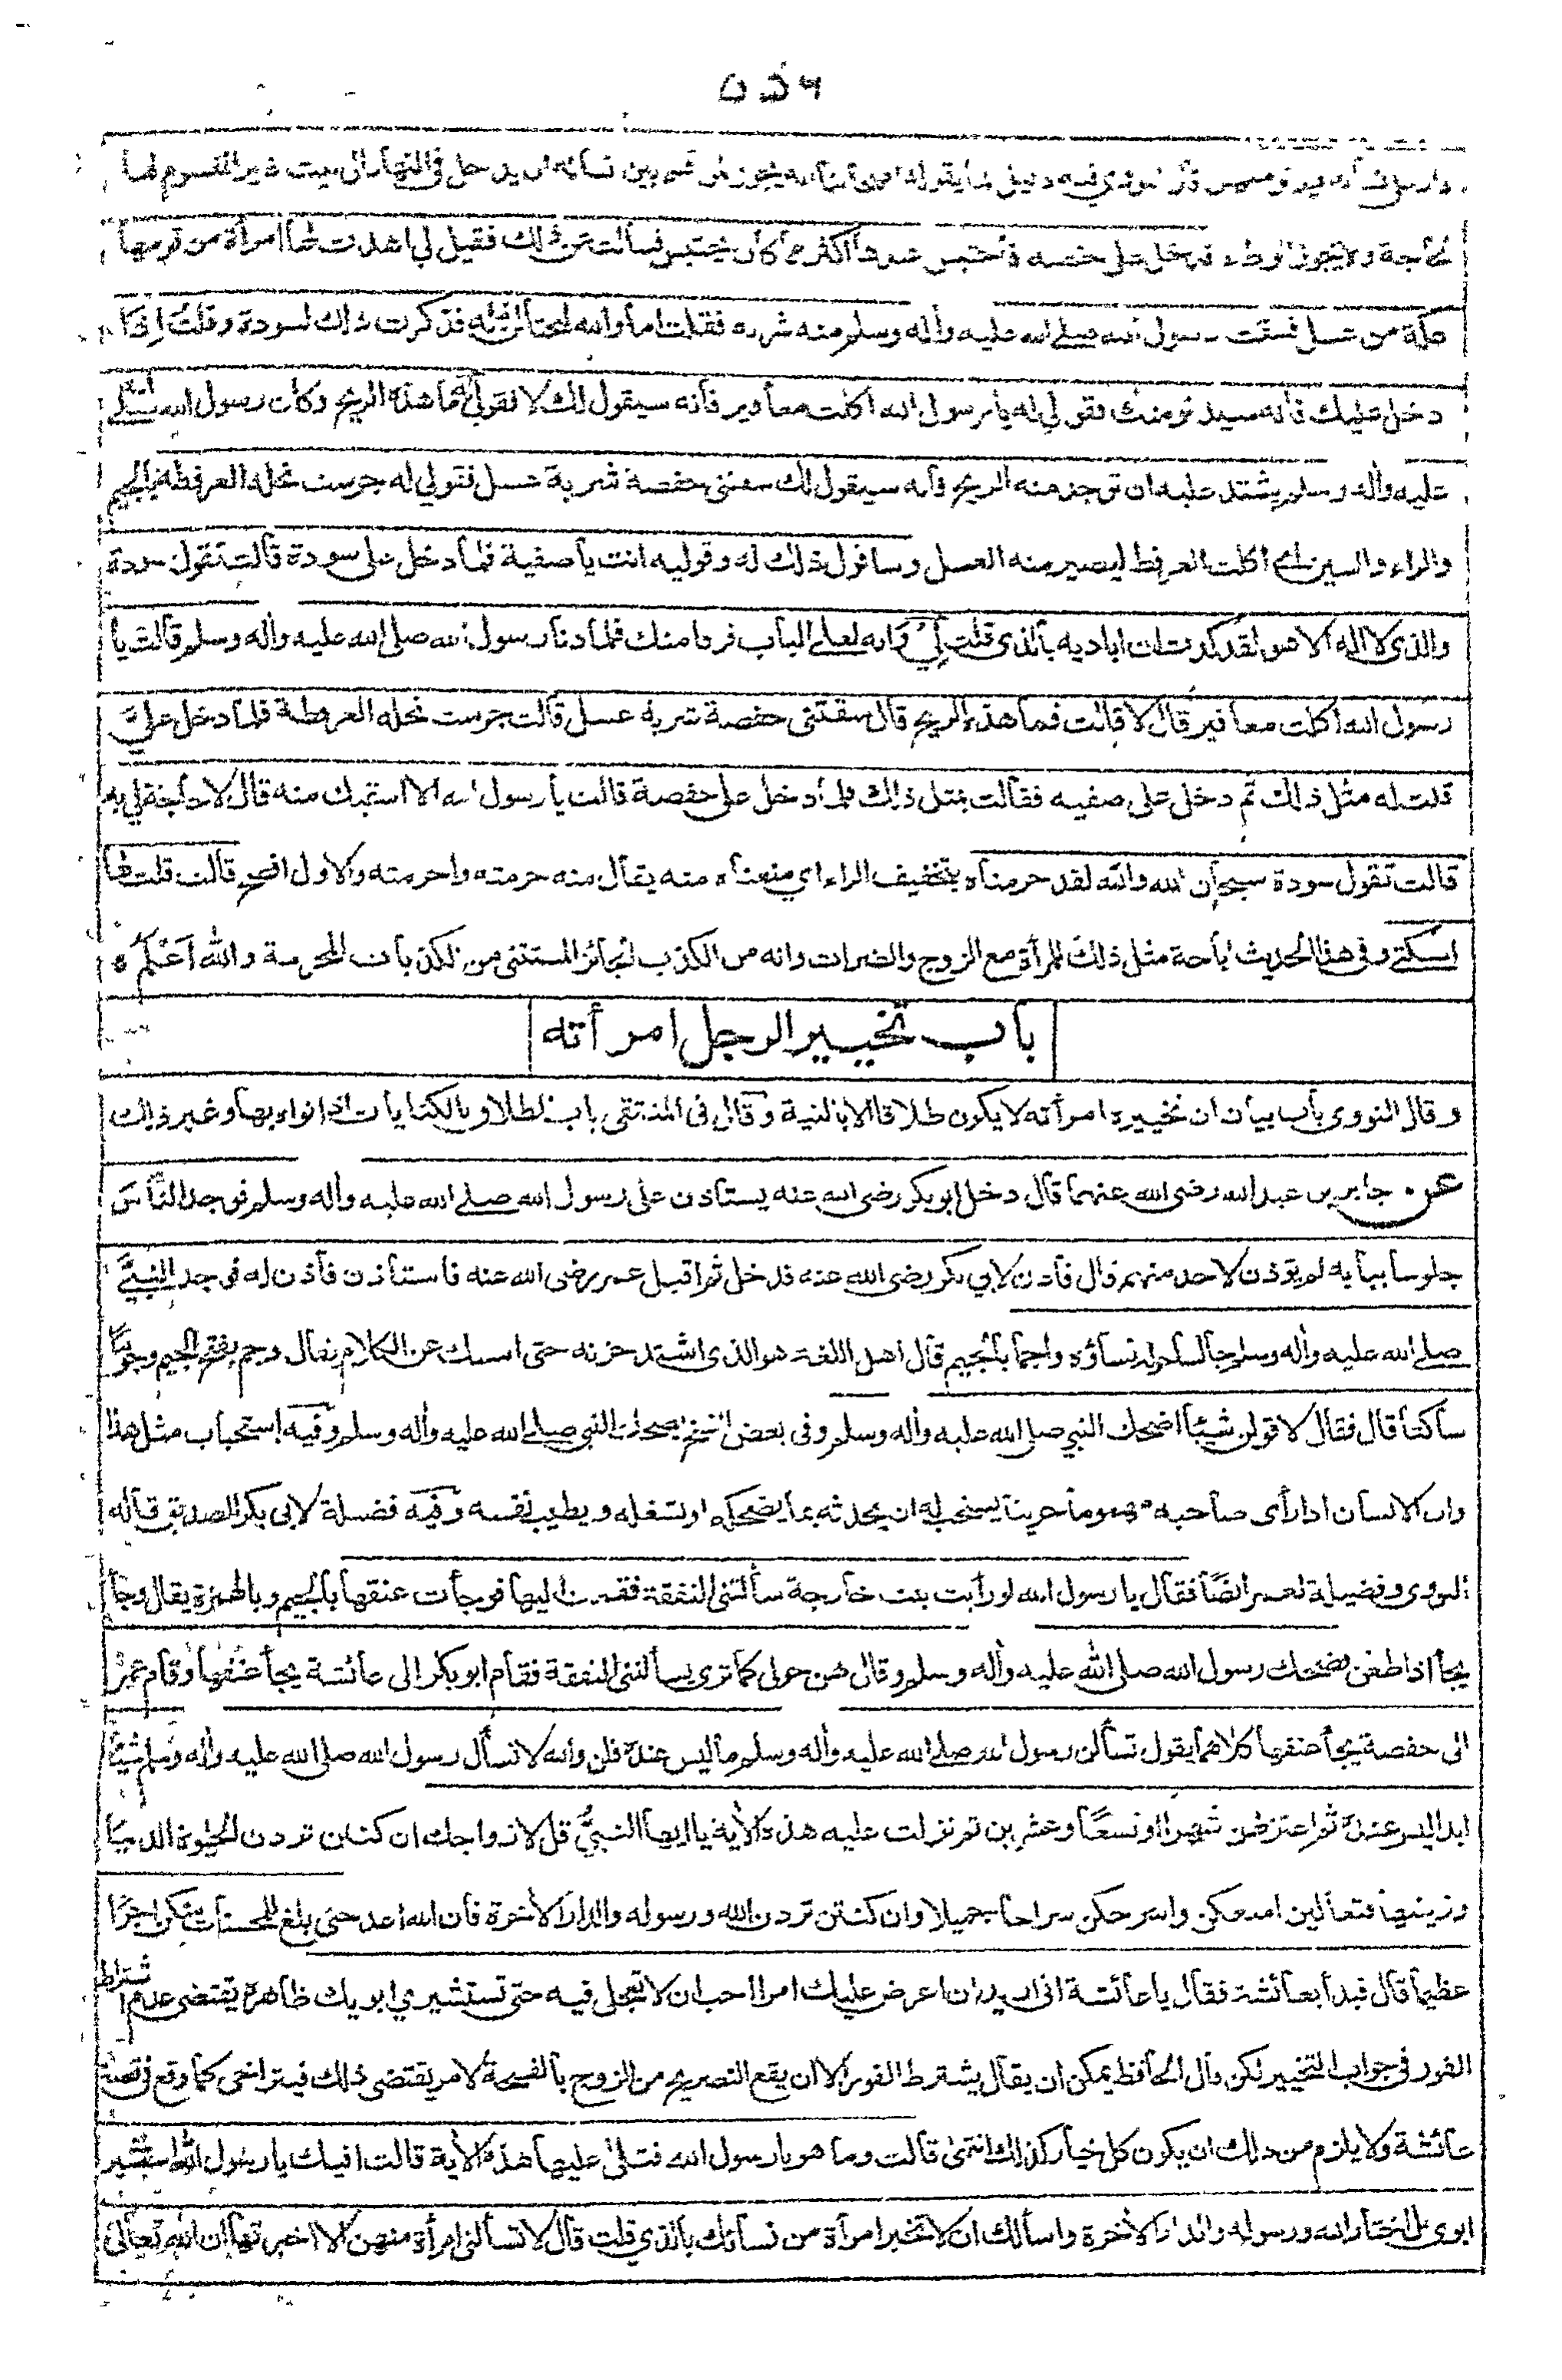 فيه دليل لما يقوله يجوز لمن قسم بين نسائه ان يدخل في النهار الى بيت غير المقسوم لها
لحاجة ولا يجوز الوطء فدخل على حفصة فاحتبس عندها اكثر مما كان يحتبس فسألت عن ذلك فقيل لي اهدت لها امرأة من قومها
عكة من عسل فسقت رسول الله صلى الله عليه وأله وسلم منه شربة فقلت اما والله لنحتالن له فذكرت ذلك لسودة وقلت اذا
دخل عليك فانه سيدنو منك فقولي له يا رسول الله اكلت مغافير فأنه سيقول لك لا فقولي له ما هذه الريح وكان رسول الله صلى الله
عليه وأله وسلم يشتد عليه ان توجد منه الريح فأنه سيقول لك سقتنى حفصة شربة عسل فقولي له جرست نحله العرفط بالجيم
والراء والسين اي اكلت العرفط ليصير منه العسل وسأقول ذلك له وقوليه انت يأ صفية فلمأ دخل على سودة قألت تقول سودة
والذي لا اله الا هو لقد كدت ان اباديه بألذي قلت لي وانه لعلى البأب فرقا منك فلمأ دنأ رسول الله صلى الله عليه وأله وسلم قألت يأ
رسول الله اكلت مغأفير قال لا قالت فمأ هذه الريح قال سقتنى حفصة شربة عسل قألت جرست نحله العرفط فلمأ دخل علي
قلت له مثل ذلك ثم دخل على صفيه فقألت بمثل ذلك فلمأ دخل على حفصة قالت يأ رسول الله الا اسقيك منه قال لا حأجة لي به
قالت تقول سودة سبحأن الله والله لقد حرمنأه بتخفيف الراء اي منعنأه منه يقأل منه حرمته واحرمته والاول افصح قألت قلت لها
اسكتي وفي هذا الحديث اباحة مثل ذلك للمرأة مع الزوج والضرات وانه من الكذب الجأئز المستثنى من الكذبات المحرمة والله أعلم ه
بأب تخيير الرجل امرأته
وقال النووي بأب بيأن ان تخييره امرأته لا يكون طلاقا الا بالنية وقال في المنتقى باب الطلاق بالكنايات اذا نواه بهأ وغير ذلك
عن جأبر بن عبد الله رضى الله عنهمأ قأل دخل ابو بكر رضى الله عنه يستأذن على رسول الله صلى الله عليه وأله وسلم فوجد النأس
جلوسأ ببأبه لم يؤذن لاحد منهم قال فأذن لابي بكر رضى الله عنه فدخل ثم اقبل عمر رضى الله عنه فأستأذن فأذن له فوجد النبي
صلى الله عليه وأله وسلم جألسأ حوله نسأؤه واجمأ بألجيم قأل اهل اللغة هو الذي اشتد حزنه حتى امسك عن الكلام يقأل وجم بفتح الجيم وجومًا
سأكتأ قأل فقأل لاقولن شيئأ اضحك النبي صلى الله عليه وأله وسلم وفي بعض النسخ يضحك النبي صلى الله عليه وأله وسلم وفيه استحبأب مثل هذا
وان الانسأن اذا رأى صأحبه مهمومأ حزينأ يستحب له ان يحدثه بمأ يضحكه او يشغله ويطيب نفسه وفيه فضيلة لابي بكر الصديق قأله
النووي وفضيلة لعمر ايضًا فقأل يأ رسول الله لو رأيت بنت خأرجة سألتنى النفقة فقمت اليهأ فوجأت عنقهأ بألجيم وبالهمزة يقأل وجأ
يجأ اذا طعن فضحك رسول الله صلى الله عليه وأله وسلم وقال هن حولي كمأ ترى يسألننى النفقة فقأم ابو بكر الى عأئشة يجأ عنقهأ وقأم عمر
الى حفصة يجأ عنقهأ كلاهمأ يقول تسألن رسول الله صلى الله عليه وأله وسلم مأ ليس عنده قلن والله لا نسأل رسول الله صلى الله عليه وأله وسلم شيئًا
ابدا ليس عنده ثم اعتزلهن شهرًا او تسعًا وعشرين ثم نزلت عليه هذه الأية يا ايهأ النبيُّ قل لازواجك ان كنتن تردن الحيوة الدنيأ
وزينتهأ فتعألين امتعكن واسرحكن سراحأ جميلا وان كنتن تردن الله ورسوله والدار الأخرة فأن الله اعد حتى بلغ للمحسنأت منكن اجرًا
عظيمأ قأل فبدأ بعأئشة فقأل يأ عأئشة انى اريد ان اعرض عليك امرا احب ان لا تعجلى فيه حتى تستشيري ابويك ظأهره يقتضى عدم اشتراط
الفور في جواب التخيير لكن قأل الحأفظ يمكن ان يقأل يشترط الفور الا ان يقع التصريح من الزوج بألفسحة لامر يقتضى ذلك فيتراخى كمأ وقع في قصة
عأئشة ولا يلزم من ذلك ان يكون كل خيأر كذلك انتهى قألت ومأ هو يا رسول الله فتلى عليهأ هذه الأية قألت افيك يأ رسول الله استشير
ابوي بل اختأر الله ورسوله والدار الأخرة واسألك ان لا تخبر امرأة من نسأئك بألذي قلت قأل لا تسألنى امرأة منهن الا اخبرتهأ ان الله تعألى